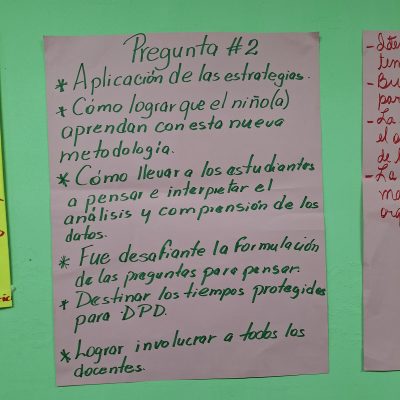 Pregunta #2
* Aplicación de las estrategias.
* Cómo lograr que el niño(a)
aprendan con esta nueva
metodología.
* Cómo llevar a los estudiantes
a pensar e interpretar el
análisis y comprensión de los
datos.
* Fue desafiante la formulación
de las preguntas para pensar.
* Destinar los tiempos protegidos
para DPD.
* Lograr involucrar a todos los
docentes.
- La
el
de
- La